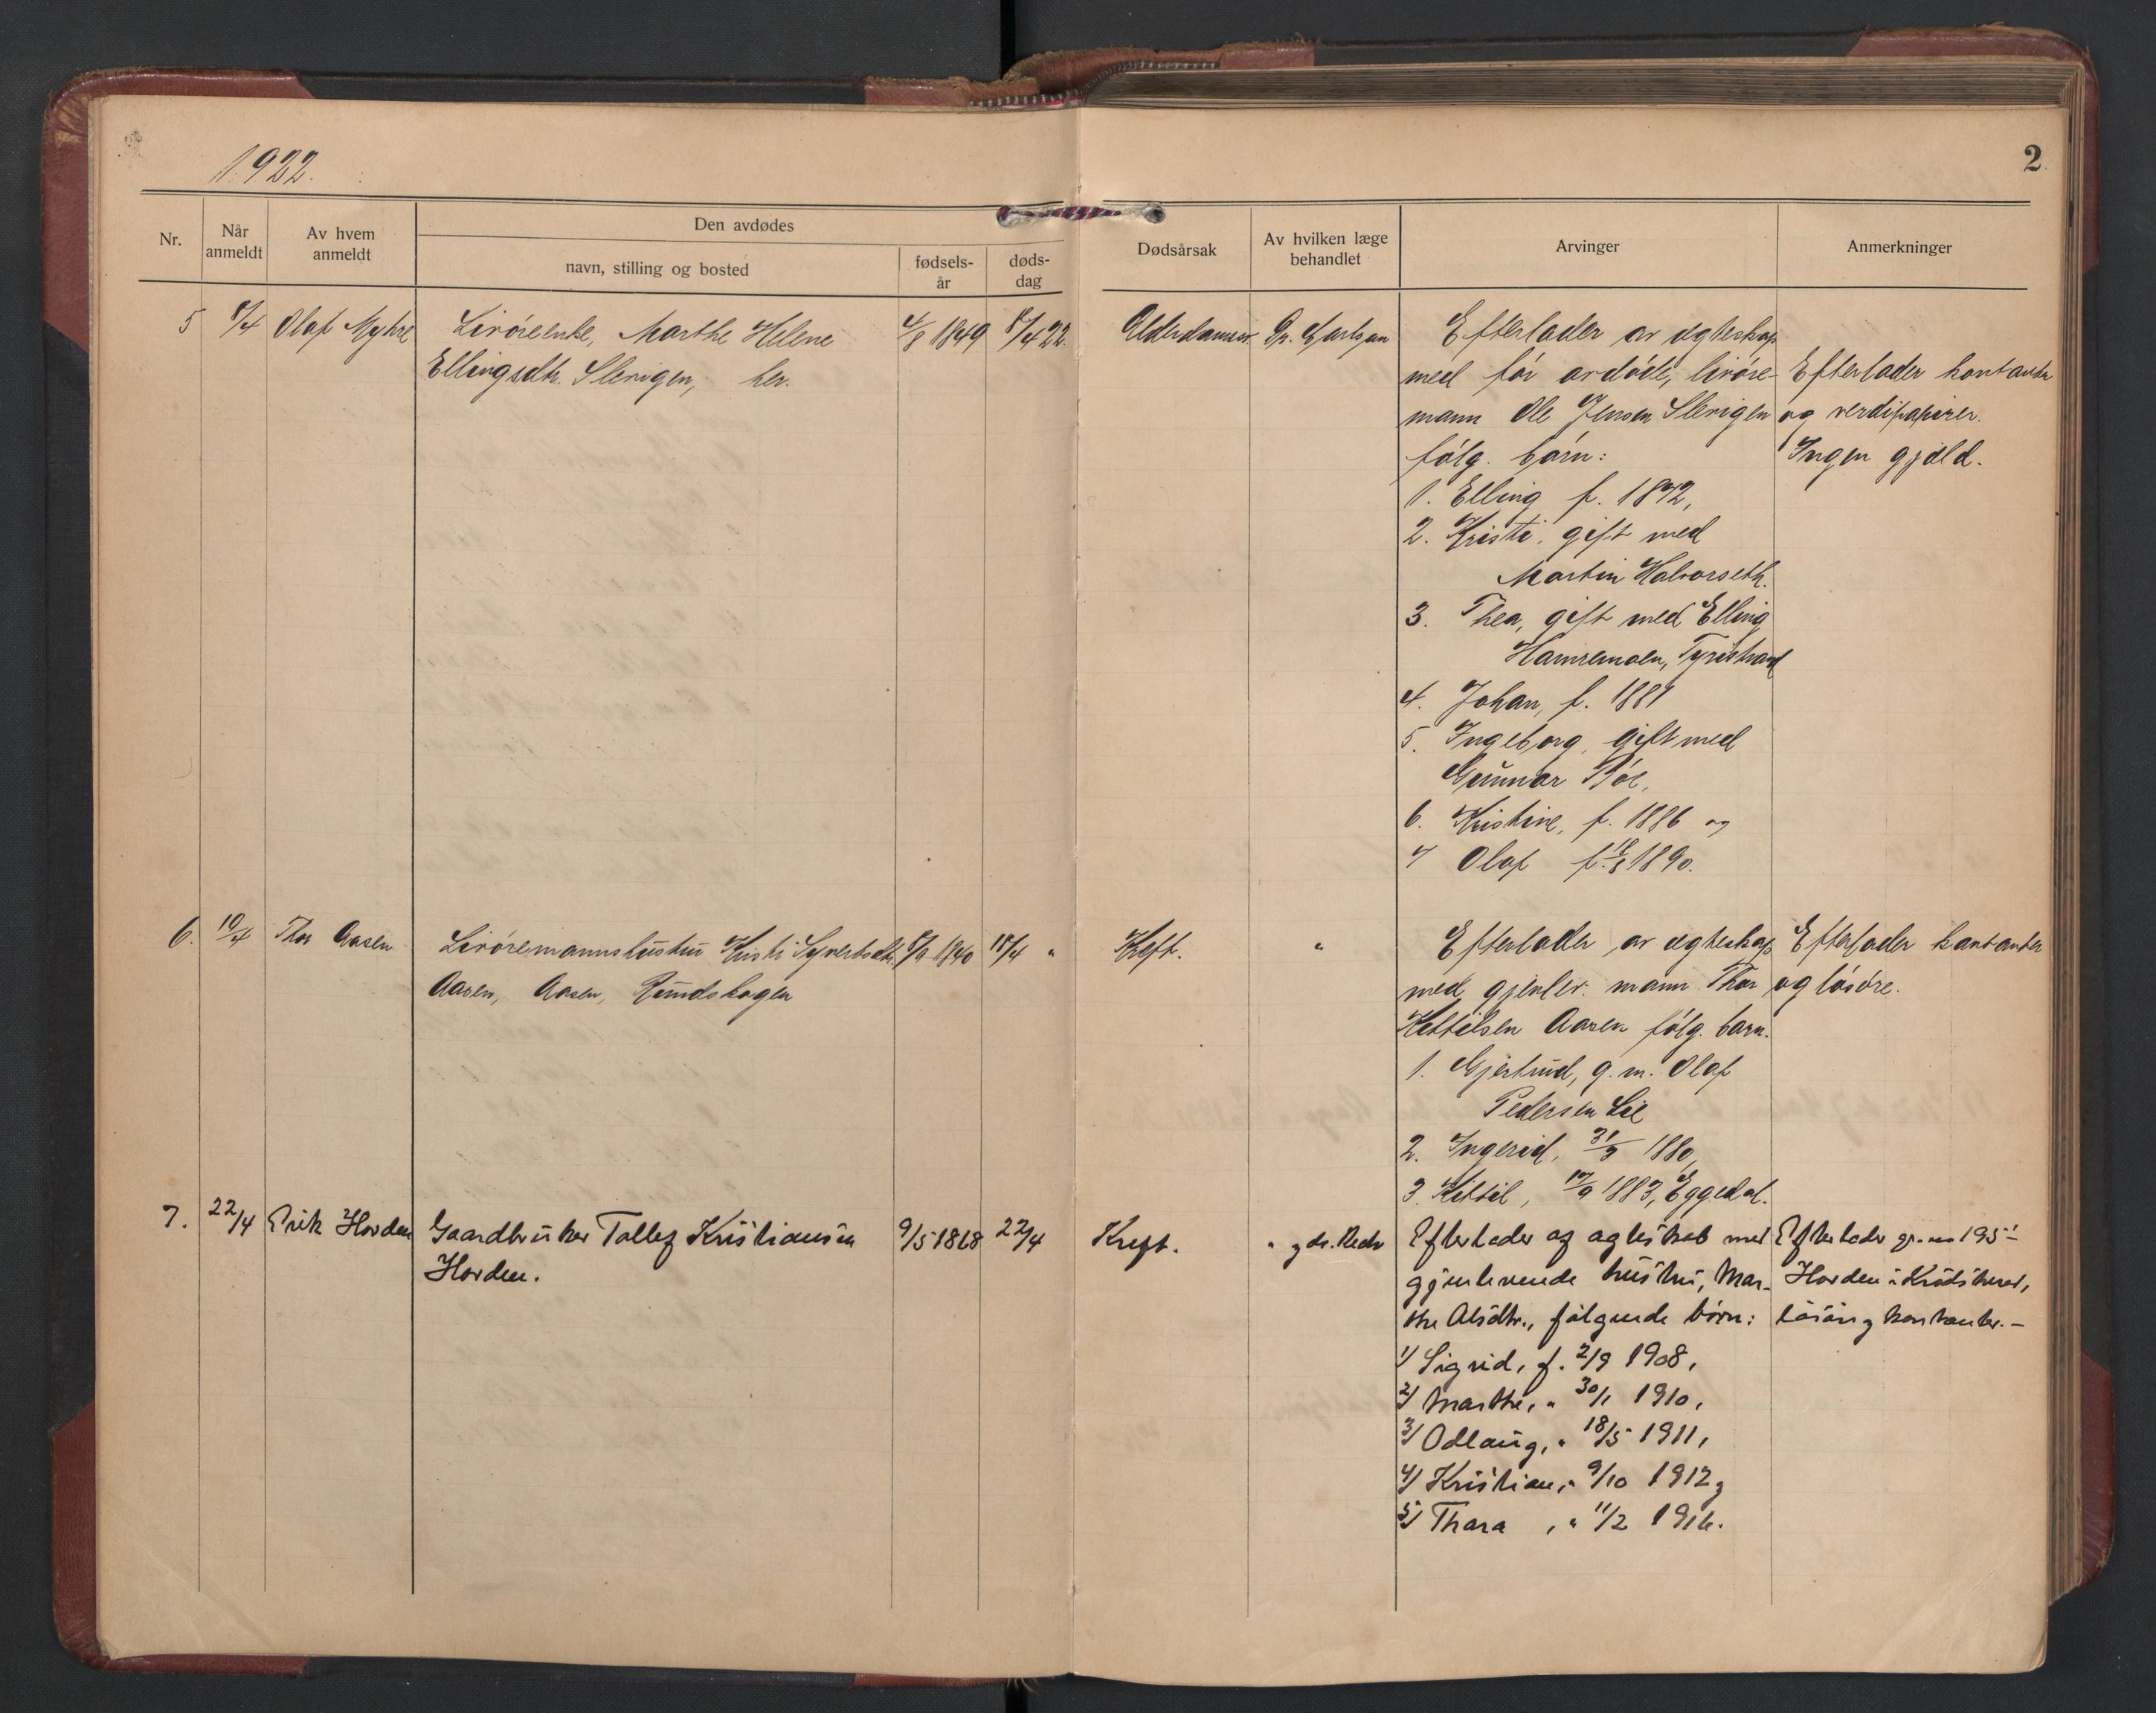 1922.
2
Nr.
Når anmeldt
Av hvem anmeldt
Den avdødes
navn, stilling og bosted
fødsels-år
døds-dag
Dødsårsak
Av hvilken læge behandlet
Arvinger
Anmerkninger
5 8/4 Olaf Myhre Livøreenke, Marthe Helene 4/8 1849 8/4 22.
Ellingsdtr. Slevigen, her.
Dr.
Efterlader av egteskap
med før avdøde, livøre-
mann Ole Jensen Slevigen
følg. børn:
1. Elling f. 1872,
2. Kristi, gift med
Martin Halvorseth.
3. Thea, gift med Elling
Hamremoen, Tyristrand
4. Johan, f. 1881
5. Ingeborg, gift med
Gunnar Bøe,
6. Kristine, f. 1886 og
7 Olaf f. 18/8 1890.
Efterlader kontanter
og verdipapirer.
Ingen gjæld.
6. 19/4 Thor Aasen Livøremannshustru Kristi Syvertsdtr. 8/9 1840 18/4 "
Aasen, Aasen,
Kreft. "
Efterlader av egteskap
med gjenlev. mann Thor
Kettilsen Aasen følg. barn.
1. Gjertrud, g. m. Olaf
Pedersen Lie
2. Ingerid, 31/3 1880,
3. Kittil, 19/9 1883, Eggedal.
Efterlader kontanter
og løsøre.
7. 22/4 Erik Horden Gaardbruker Tollef Kristiansen 9/5 1868 22/4
Horden.
Kreft.
Efterlader af ægteskab med
gjenlevende hustru, Mar-
the Olsdtr., følgende børn:
1) Sigrid, f. 2/9 1908,
2) Marthe, " 30/1 1910,
3) Odlaug, " 18/5 1911,
4) Kristian, " 9/10 1912 og
5) Thora, " 11/2 1916.
Efterlader gr. no 195
Horden i Krødsherad,
løsøre og kontanter. –